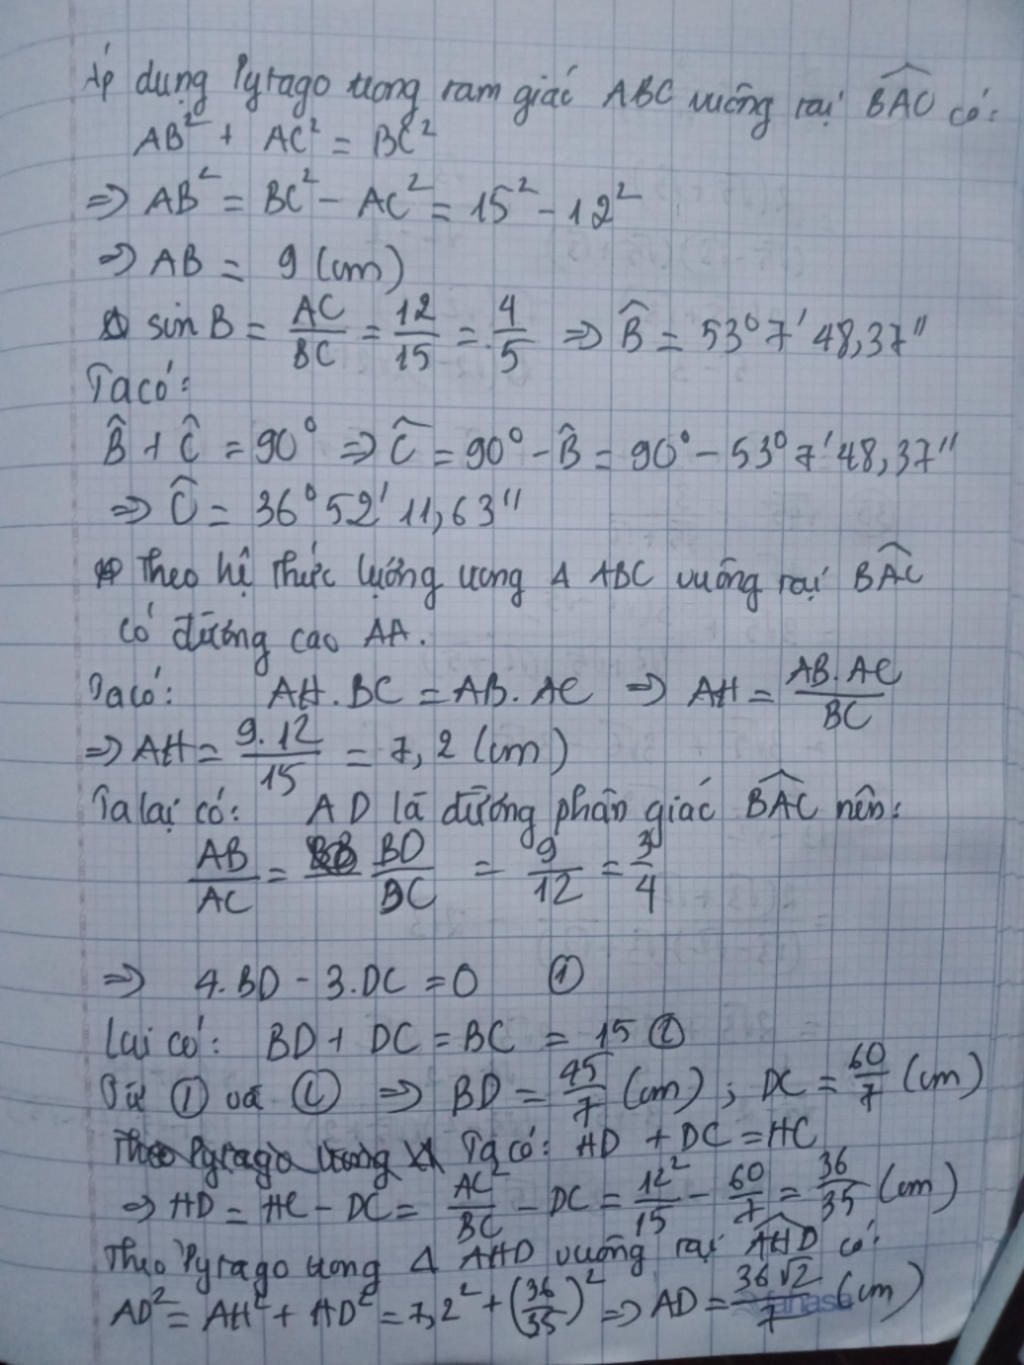 Áp dụng Pyrago trong tam giác ABC vuông tại \widehat{BAC} có:
AB² + AC² = BC²
=> AB² = BC² - AC² = 15² - 12²
=> AB = 9 (cm)
sin B = \frac{AC}{BC} = \frac{12}{15} = \frac{4}{5} => \widehat{B} = 53° 7' 48,37''
Ta có:
\widehat{B} + \widehat{C} = 90° => \widehat{C} = 90° - \widehat{B} = 90° - 53° 7' 48,37''
=> \widehat{C} = 36° 52' 11,63''
Theo hệ thức lượng trong Δ ABC vuông tại \widehat{BAC}
có đường cao AA.
Ta có: AH.BC = AB.AC => AH = \frac{AB.AC}{BC}
=> AH = \frac{9.12}{15} = 7,2 (cm)
Ta lại có: AD là đường phân giác \widehat{BAC} nên:
\frac{AB}{AC} = \frac{BD}{BC} = \frac{9}{12} = \frac{3}{4}
=> 4.BD - 3.DC = 0 ①
Lại có: BD + DC = BC = 15 ②
Từ ① và ② => BD = \frac{45}{7} (cm) ; DC = \frac{60}{7} (cm)
Theo Pyrago trong Ta có: HD + DC = HC
=> HD = HC - DC = \frac{AC²}{BC} - DC = \frac{12²}{15} - \frac{60}{7} = \frac{36}{35} (cm)
Theo Pyrago trong Δ AHD vuông tại \widehat{AHD} có:
AD² = AH² + HD² = 7,2² + (\frac{36}{35})² => AD = \frac{36√2}{7} (cm)